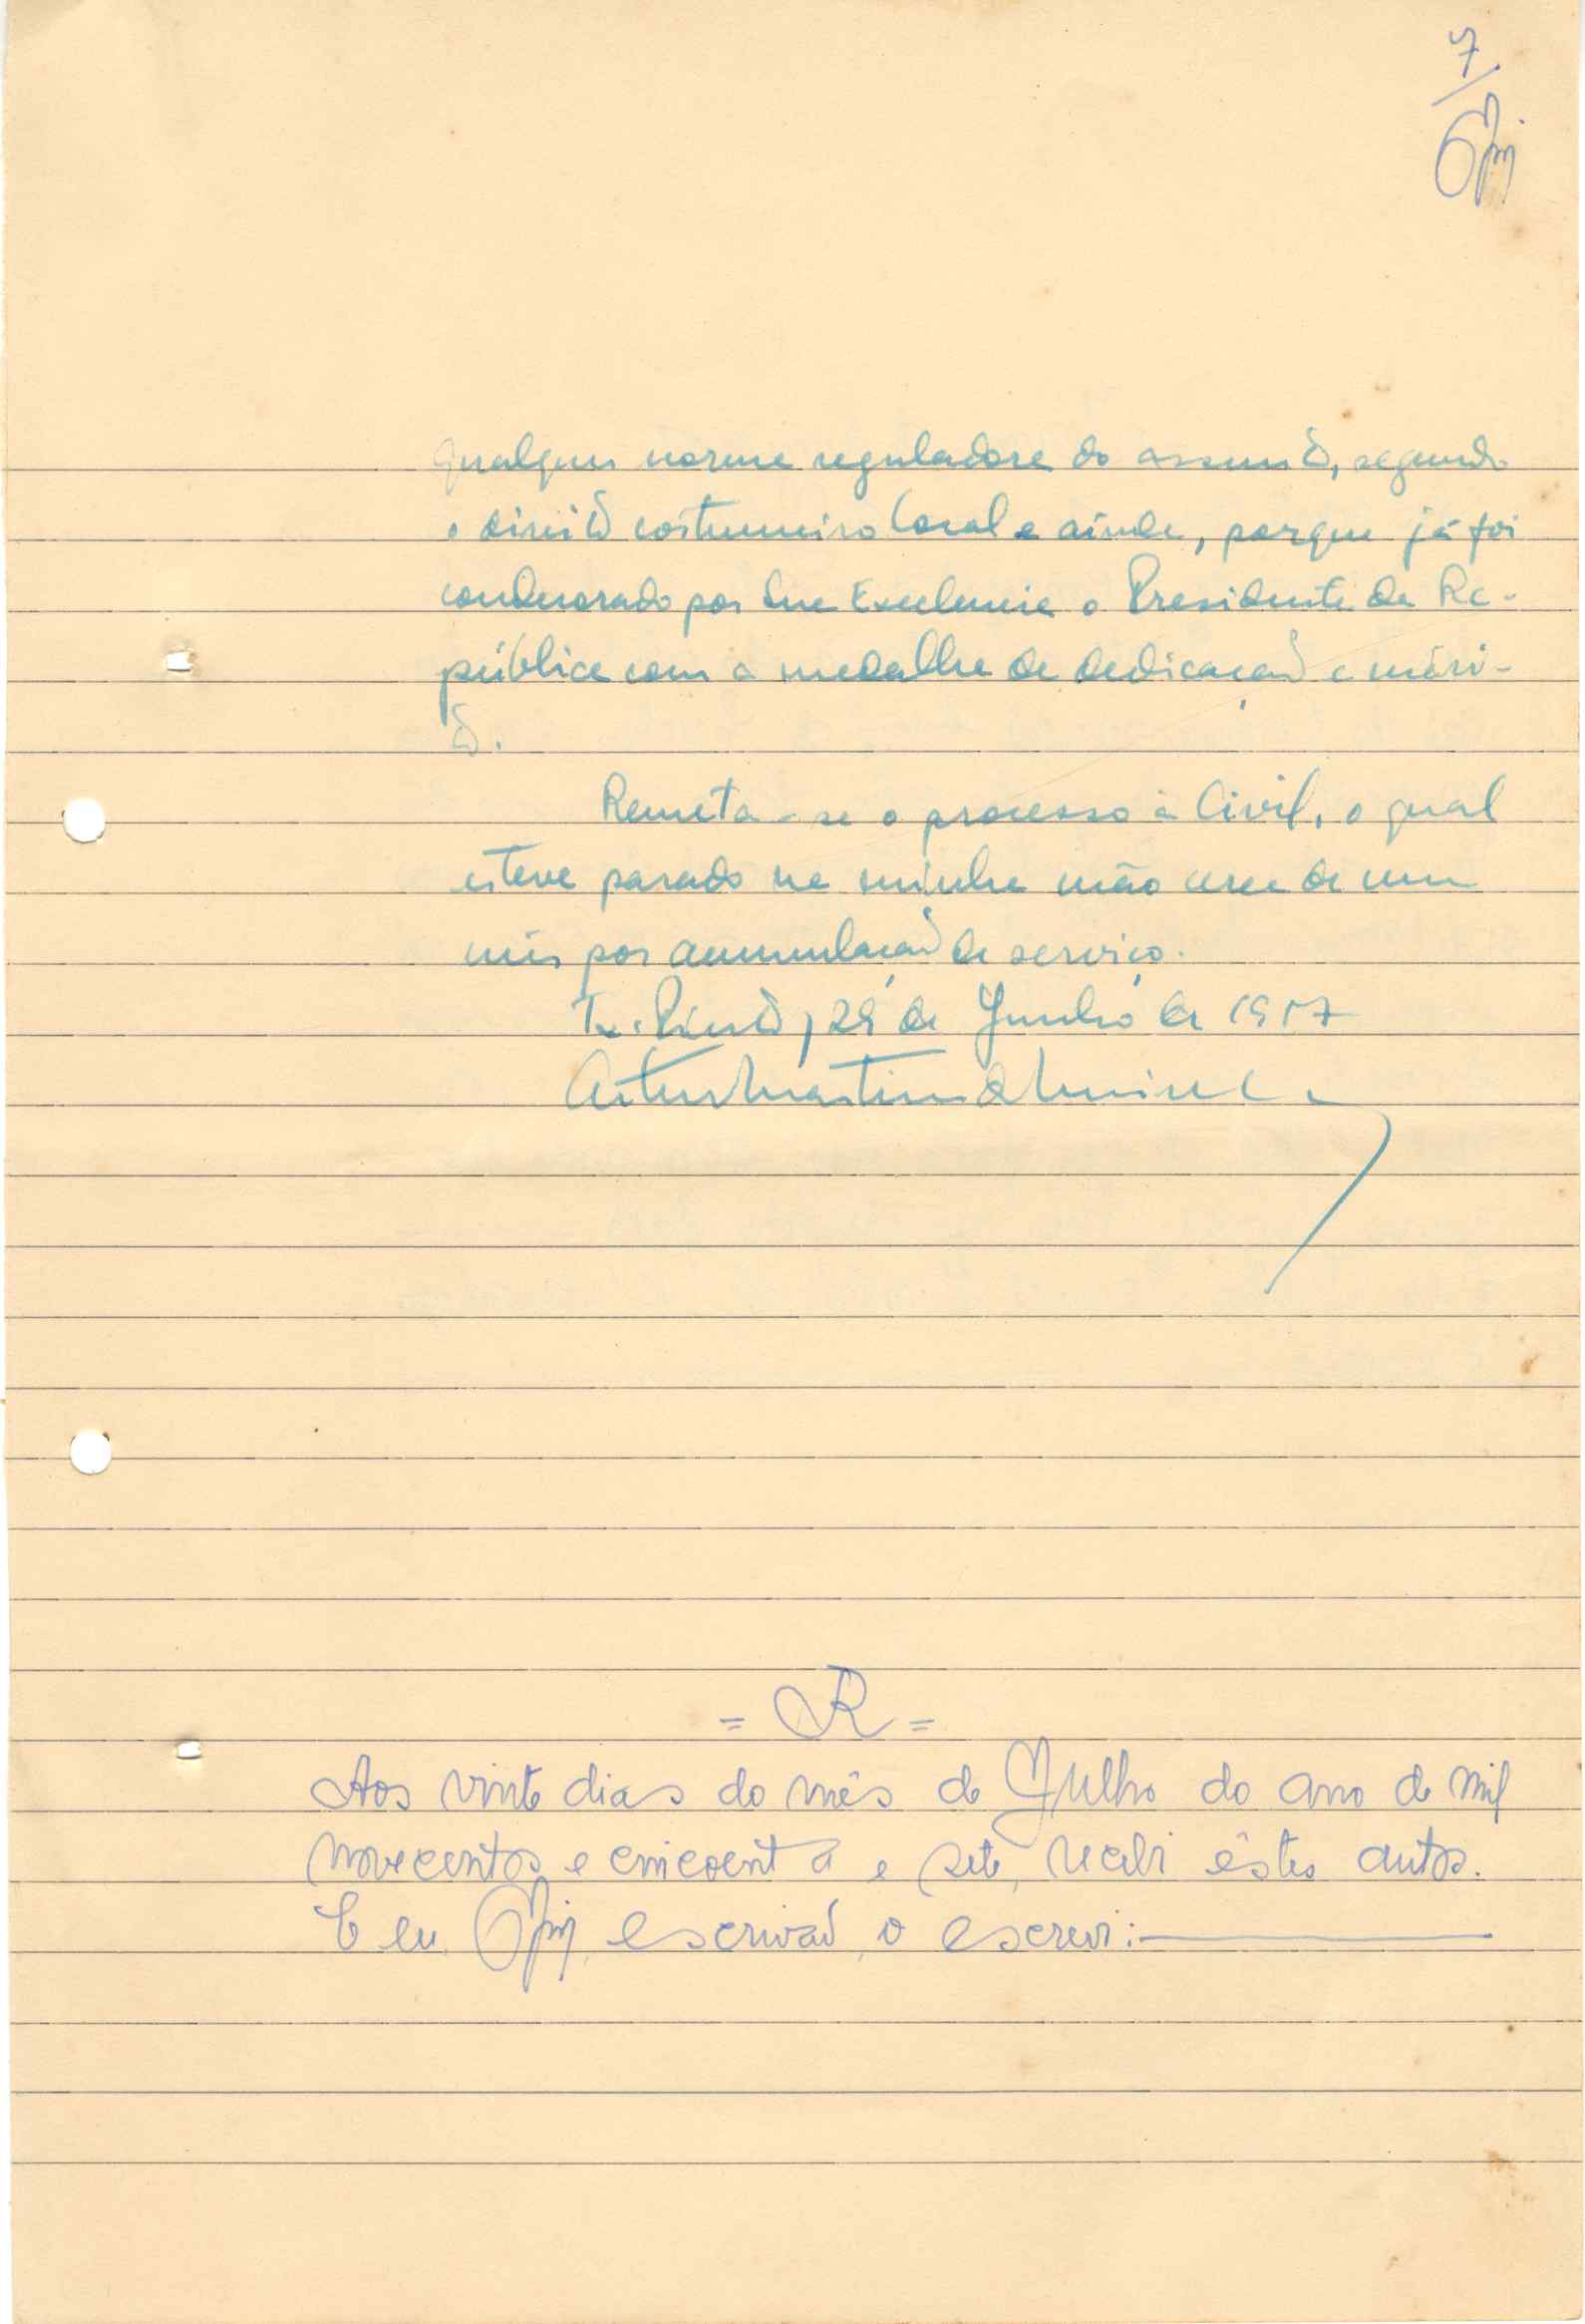 7
qualquer norma reguladora do assunto, segundo
o direito costumeiro local e ainda, porque já foi
condecorado por Sua Excelencia o Presidente da Re-
pública com a medalha de dedicação e méri-
to.
Remeta-se o processo à Civil, o qual
esteve parado na minha mão cerca de um
mês por acumulação de serviço.
T. Pinto, 29 de Junho de 1957
Artur Martins de
= R =
Aos vinte dias do mês de Julho do ano de mil
novecentos e cincoenta e sete, recebi êstes autos.
E eu escrivão, o escrevi: